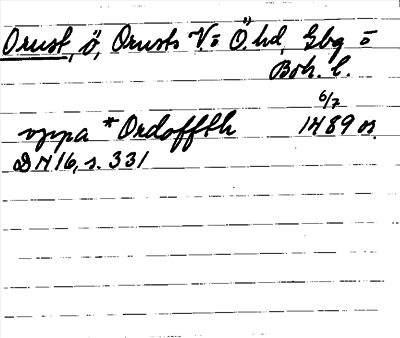 Orust, ö, Orusts V o Ö hd, Gbg o
Boh. l.
6/7
uppa *Ordoffth 1489 or.
DN 16, s. 331